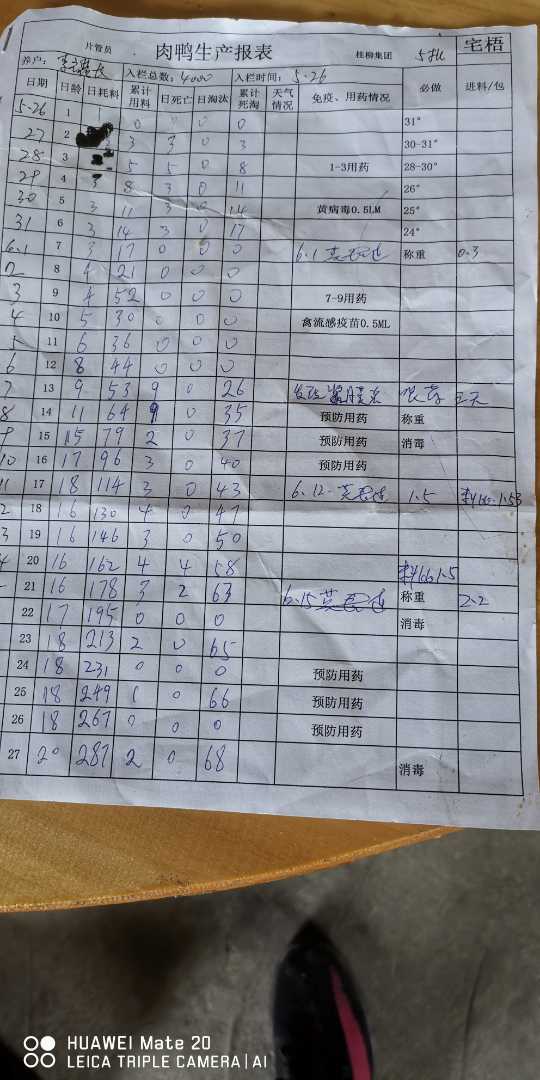 片管员 肉鸭生产报表 桂柳集团 5批 宅梧
养户: 入栏总数: 4000 入栏时间: 5-26
日期 日龄 日耗料 累计用料 日死亡 日淘汰 累计死淘 天气情况 免疫、用药情况 必做 进料/包
5-26 1 1 0 0 0 0 31°
27 2 3 3 3 0 3 30-31°
28 3 5 5 0 8 1-3用药 28-30°
29 4 3 8 3 0 11 26°
30 5 3 11 3 0 14 黄病毒0.5LM 25°
31 6 3 14 3 0 17 24°
6.1 7 3 17 0 0 0 6.1 称重 0.3
2 8 4 21 0 0 0
3 9 4 52 0 0 0 7-9用药
4 10 5 30 0 0 0 禽流感疫苗0.5ML
5 11 6 36 0 0 0
6 12 8 44 0 0 0
7 13 9 53 9 0 26 三天
8 14 11 64 9 0 35 预防用药 称重
9 15 15 79 2 0 37 预防用药 消毒
10 16 17 96 3 0 40 预防用药
11 17 18 114 3 0 43 6.12 1.5
2 18 16 130 4 0 47
3 19 16 146 3 0 50
4 20 16 162 4 4 58 1.5
21 16 178 3 2 63 6.15 称重 2.2
22 17 195 0 0 0 消毒
23 18 213 2 0 65
24 18 231 0 0 0 预防用药
25 18 249 1 0 66 预防用药
26 18 267 0 0 0 预防用药
27 20 287 2 0 68 消毒
HUAWEI Mate 20
LEICA TRIPLE CAMERA | AI